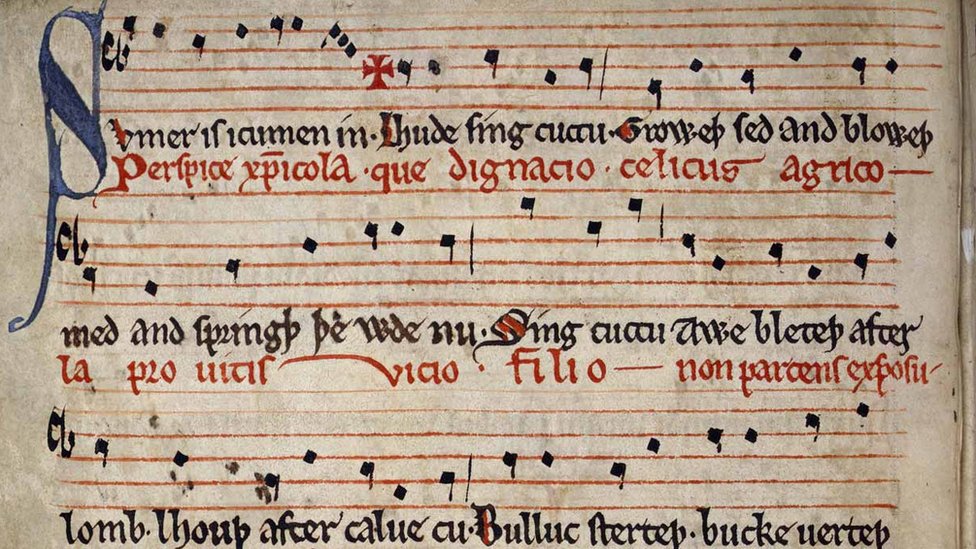 Svmer is icumen in · Lhude sing cuccu · Groweþ sed and bloweþ
Perspice xp̅icola · que dignacio · celicus agrico —
med and springþ þe wde nu · Sing cuccu Awe bleteþ after
la pro uitis vicio · filio — non parcens exposu-
lomb · lhouþ after calue cu · Bulluc sterteþ · bucke uerteþ